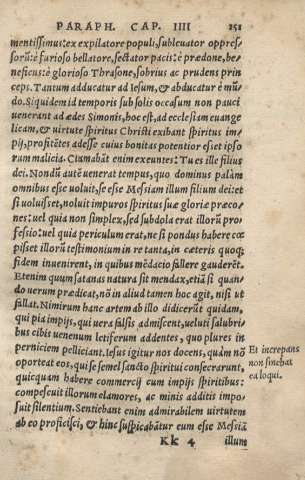 PARAPH. CAP. IIII 251
mentissimus: ex expilatore populi, subleuator oppres-
sorũ: è furioso bellatore, sectator pacis: è prædone, be-
neficus: è glorioso Thrasone, sobrius ac prudens prin
ceps. Tantum adducatur ad Iesum, & abducatur è mũ-
do. Siquidem id temporis sub solis occasum non pauci
uenerant ad ædes Simonis, hoc est, ad ecclesiam euange
licam, & uirtute spiritus Christi exibant spiritus im-
pij, profitẽtes adesse cuius bonitas potentior esset ipso
ram malicia. Clamabãt enim exeuntes: Tu es ille filius
dei. Nondũ autẽ uenerat tempus, quo dominus palàm
omnibus esse uoluit, se esse Messiam illum filium dei: et
si uoluisset, noluit impuros spiritus suæ gloriæ præco
nes: uel quia non simplex, sed subdola erat illorũ pro-
fessio: uel quia periculum erat, ne si pondus habere cœ
pisset illorũ testimonium in re tanta, in cæteris quoq;
fidem inuenirent, in quibus mẽdacio fallere gauderẽt.
Etenim quum satanas natura sit mendax, etiã si quan-
do uerum prædicat, nõ in aliud tamen hoc agit, nisi ut
fallat. Nimirum hanc artem ab illo didicerũt quidam,
qui pia impijs, qui uera falsis admiscent, ueluti salubri-
bus cibis uenenum letiferum addentes, quo plures in
perniciem pelliciant. Iesus igitur nos docens, quàm nõ
oporteat eos, qui se semel sancto spiritui consecrarunt,
quicquam habere commercij cum impijs spiritibus:
compescuit illorum clamores, ac minis additis impo-
suit silentium. Sentiebant enim admirabilem uirtutem
ab eo proficisci, & hinc suspicabãtur eum esse Messiã
Kk 4 illum
Et increpans
non sinebat
ea loqui.